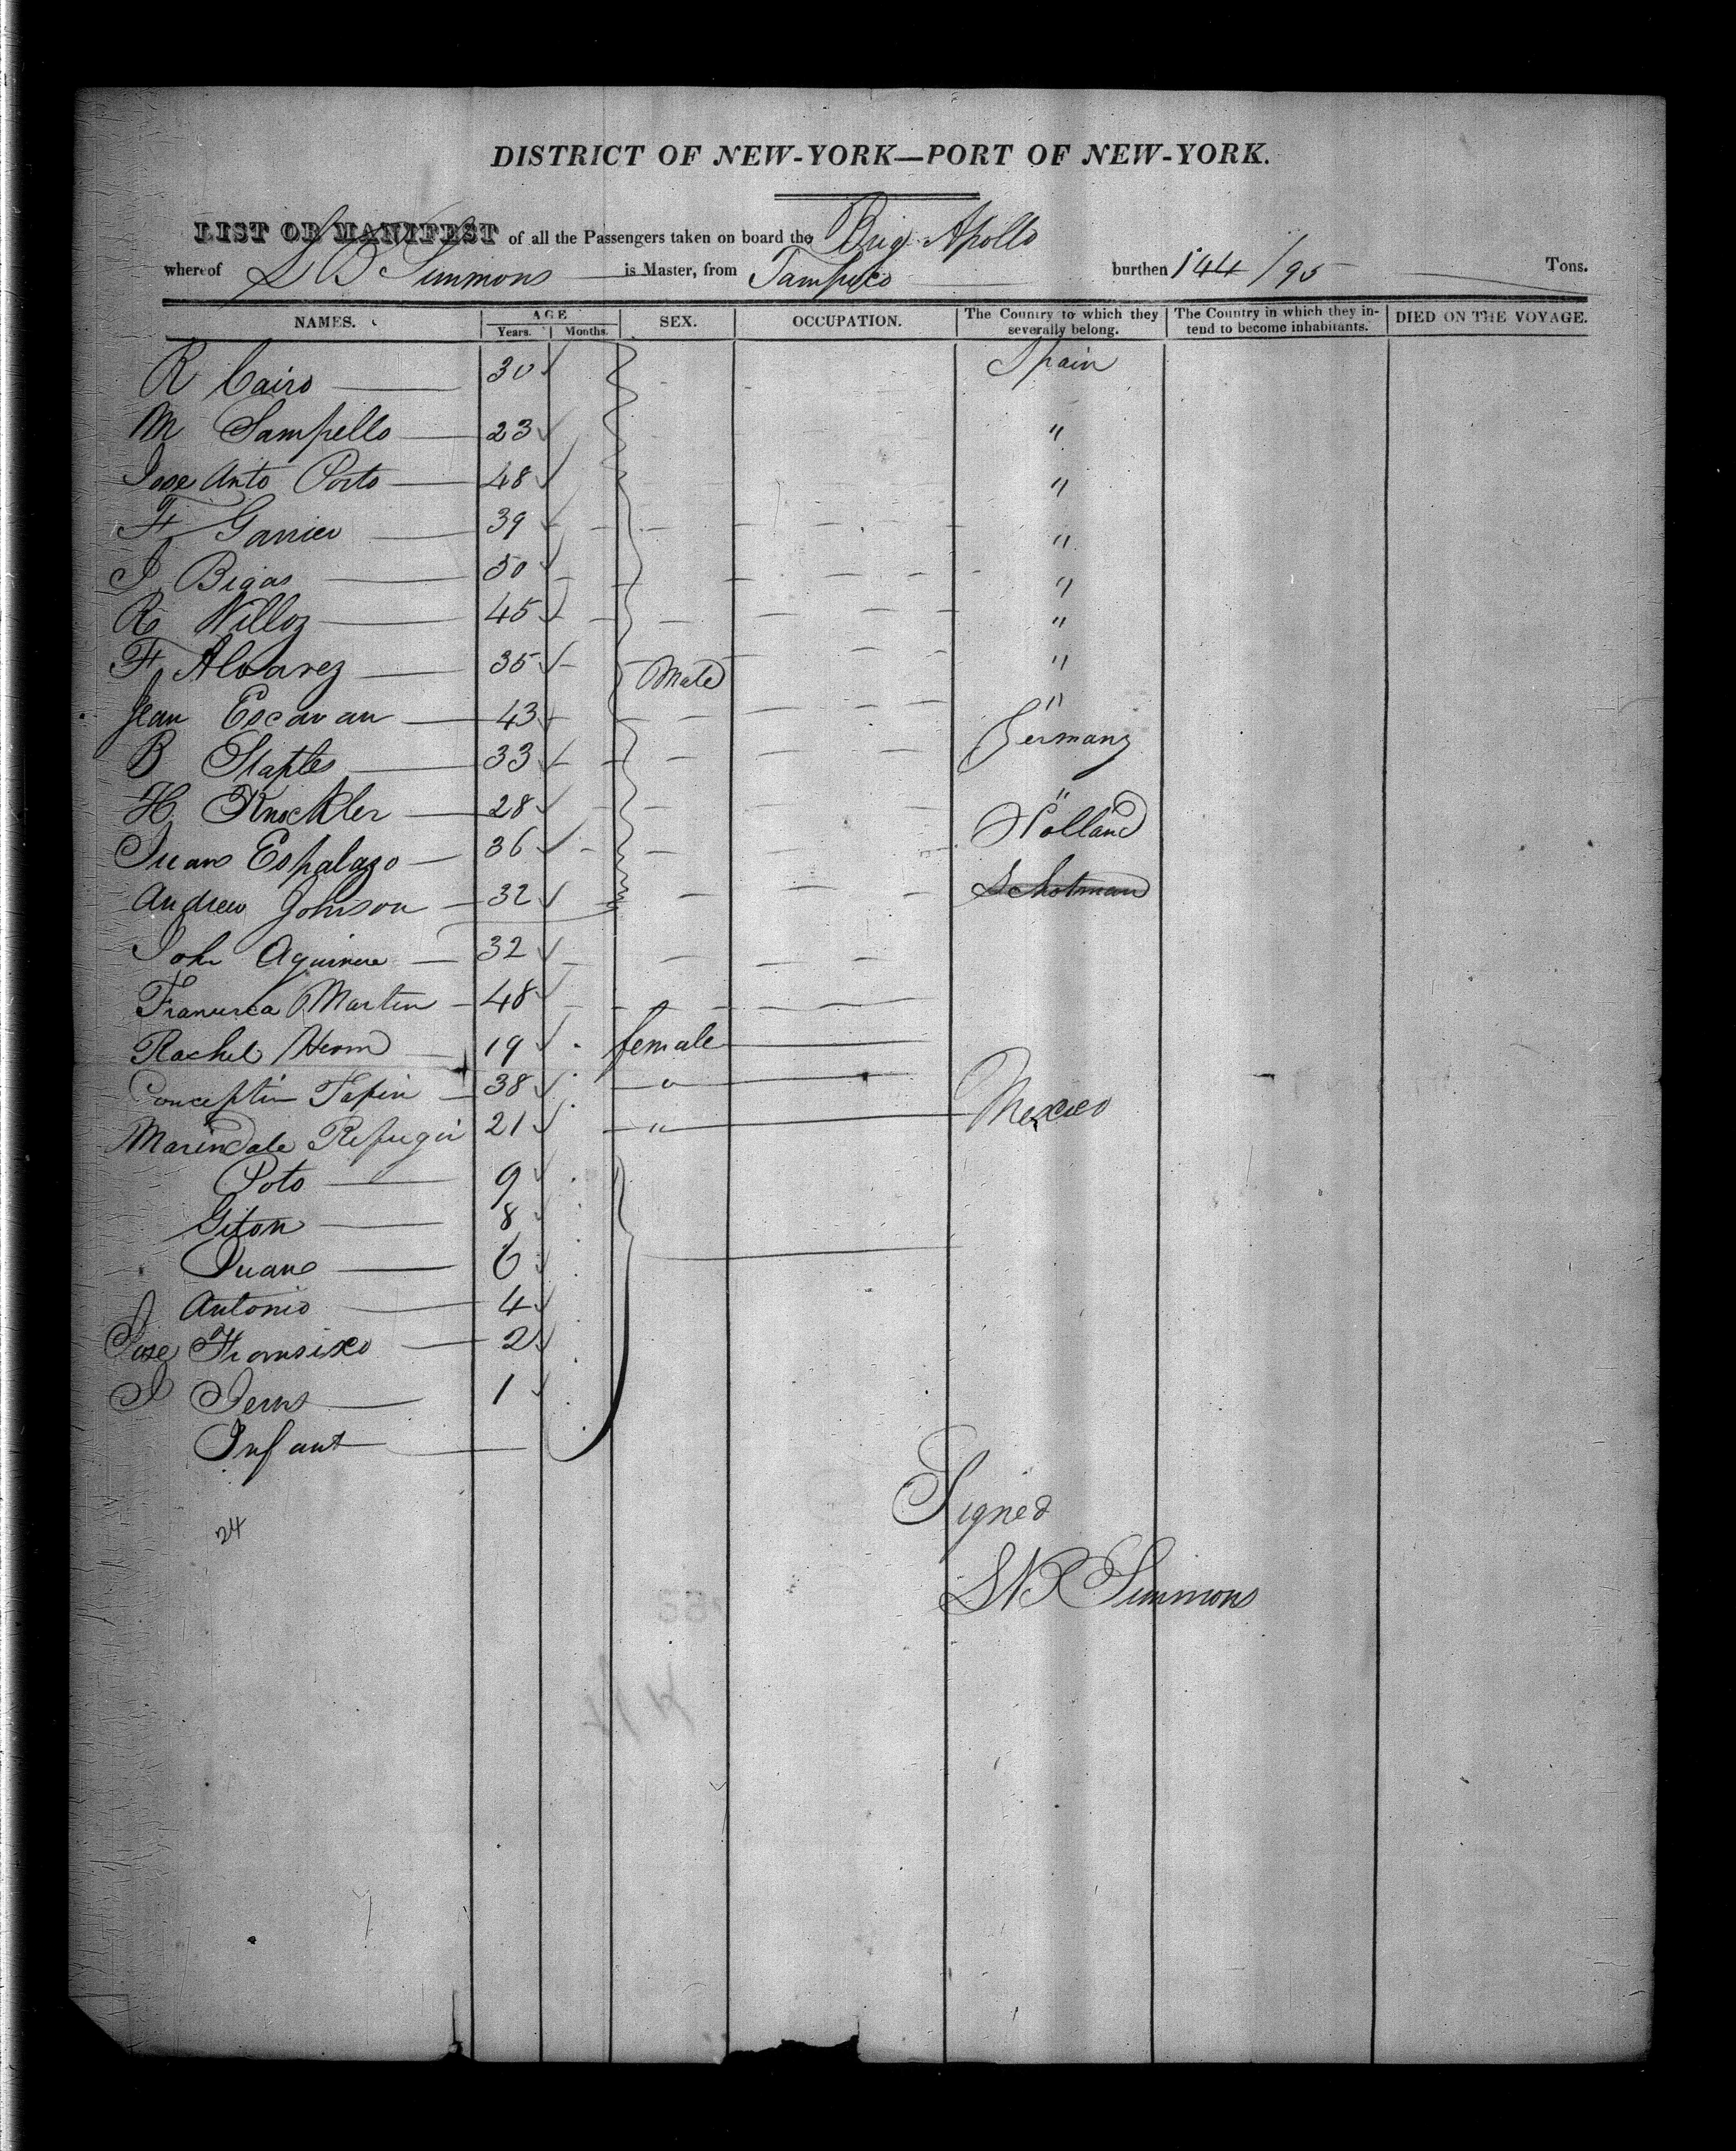 DISTRICT OF NEW-YORK—PORT OF NEW-YORK.
LIST OR MANIFEST of all the Passengers taken on board the Brig Apollo
whereof S B Simmons is Master, from Tampico burthen 144/95 Tons.
NAMES. AGE Years. Months. SEX. OCCUPATION. The Country to which they severally belong. The Country in which they intend to become inhabitants. DIED ON THE VOYAGE.
R Cairo 30 Spain
M Sampello 23 "
Jose Anto Porto 48 "
F 39 "
J Bigas 50 "
R Villoz 45 "
F Alvarez 35 Male "
Jean Escavan 43 "
B Staples 33 Germany
H Knockler 28 "
Juan Espalazo 36 Holland
Andrew Johnson 32 Schotman
John 32
Martin 48
Rachel 19 female
Conceptin Tapin 38 "
Marindale Refugir 21 " Mexico
Poto 9
Giton 8
Juan 6
Antonio 4
Jose Fransisco 2
J 1
Infant
24
Signed
S B Simmons